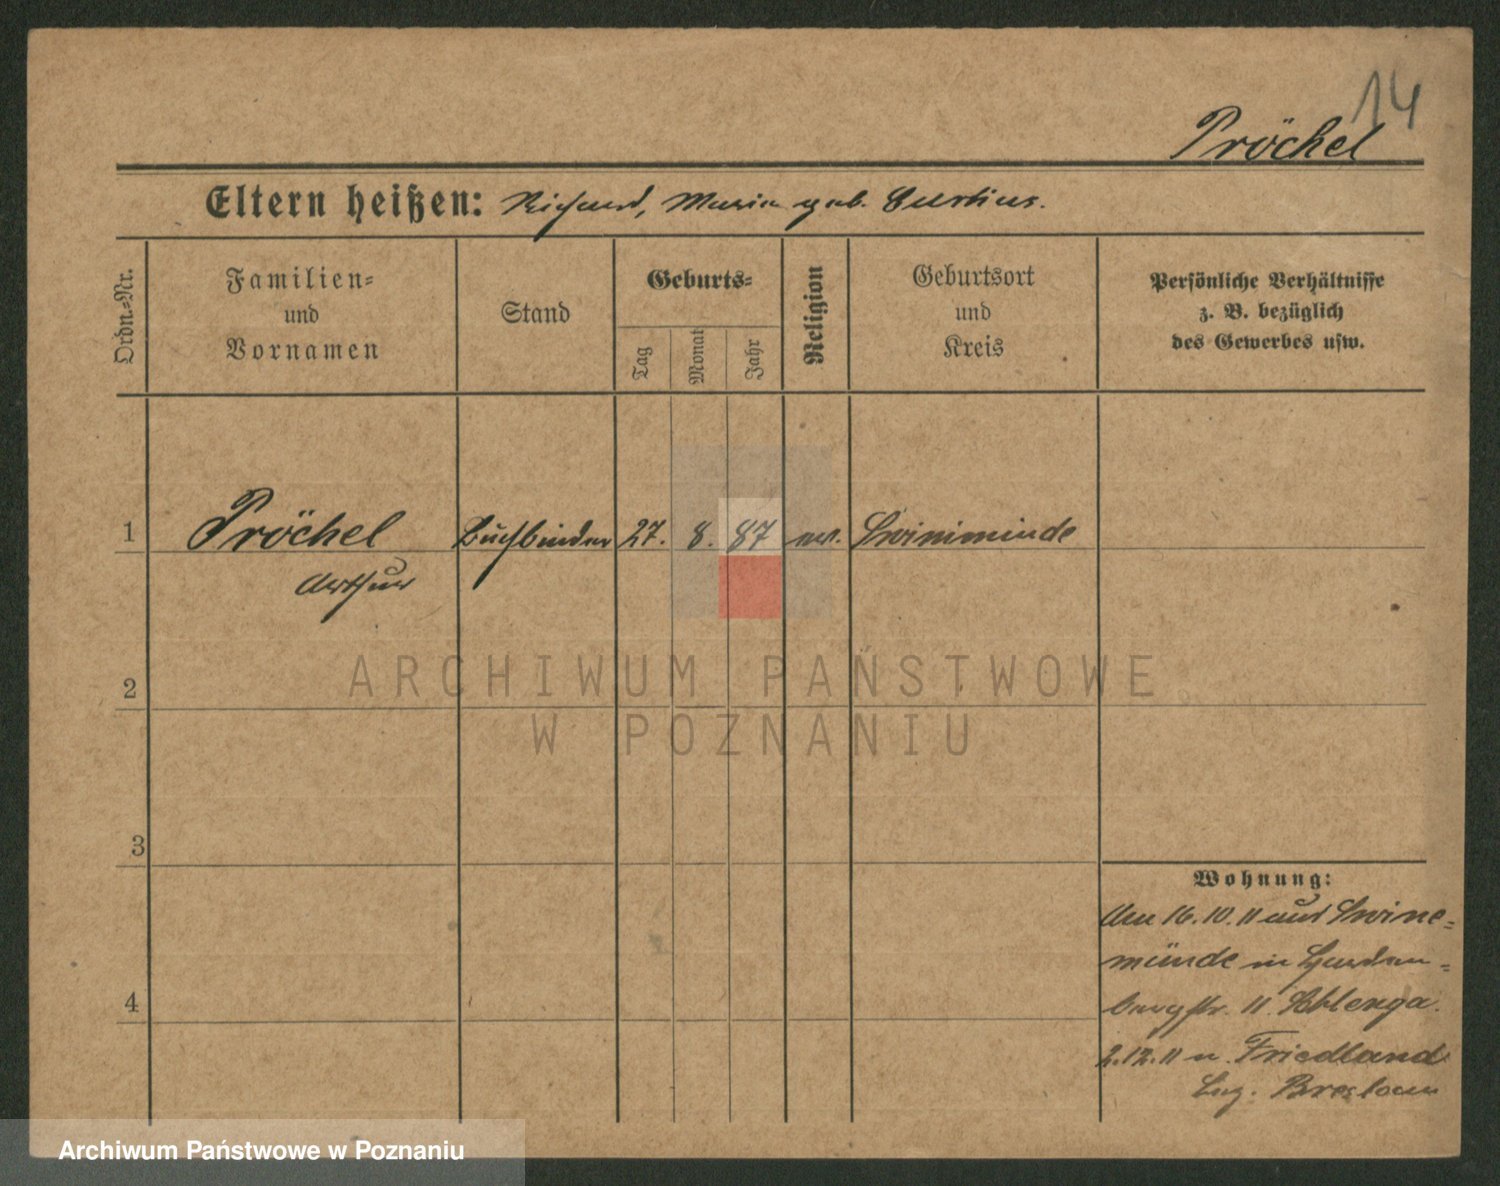 14
Pröchel
Eltern heißen: Richard, Maria geb. Curtius.
Ordn.=Nr.
Familien=
und
Vornamen
Stand
Geburts=
Tag
Monat
Jahr
Religion
Geburtsort
und
Kreis
Persönliche Verhältnisse
z. B. bezüglich
des Gewerbes usw.
1 Pröchel Buchbinder 27. 8. 87 ev. Swiniminde
Arthur
2
3
4
Wohnung:
Am 16.10.11 aus Swine=
münde in
bergstr. 11
2.12.11 n. Friedland
Bez. Breslau
ARCHIWUM PAŃSTWOWE
W POZNANIU
Archiwum Państwowe w Poznaniu